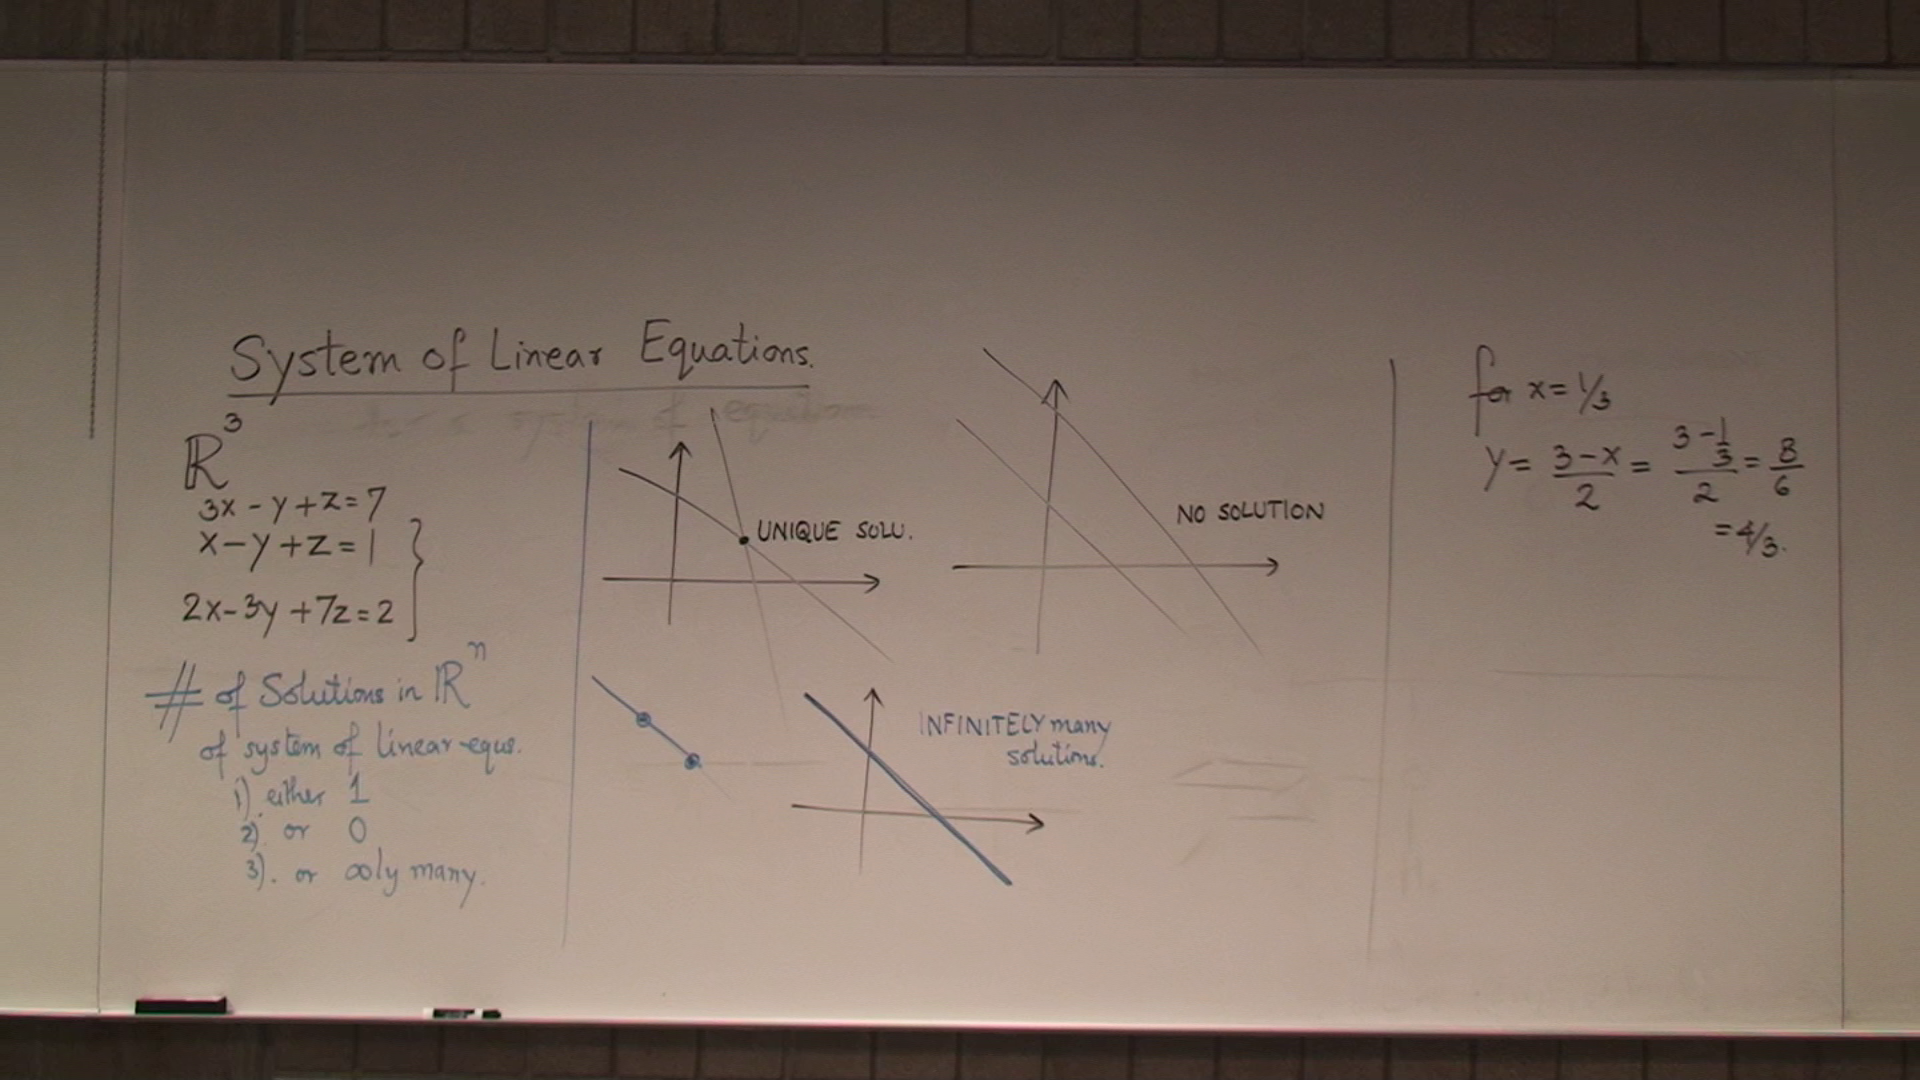 System of Linear Equations.
ℝ³
3x - y + z = 7
x - y + z = 1
2x - 3y + 7z = 2
# of Solutions in ℝⁿ
of system of linear equs.
1) either 1
2). or 0
3). or ∞ly many.
UNIQUE SOLU.
NO SOLUTION
INFINITELY many
solutions.
for x = 1/3
y = (3 - x)/2 = (3 - 1/3)/2 = 8/6
= 4/3.